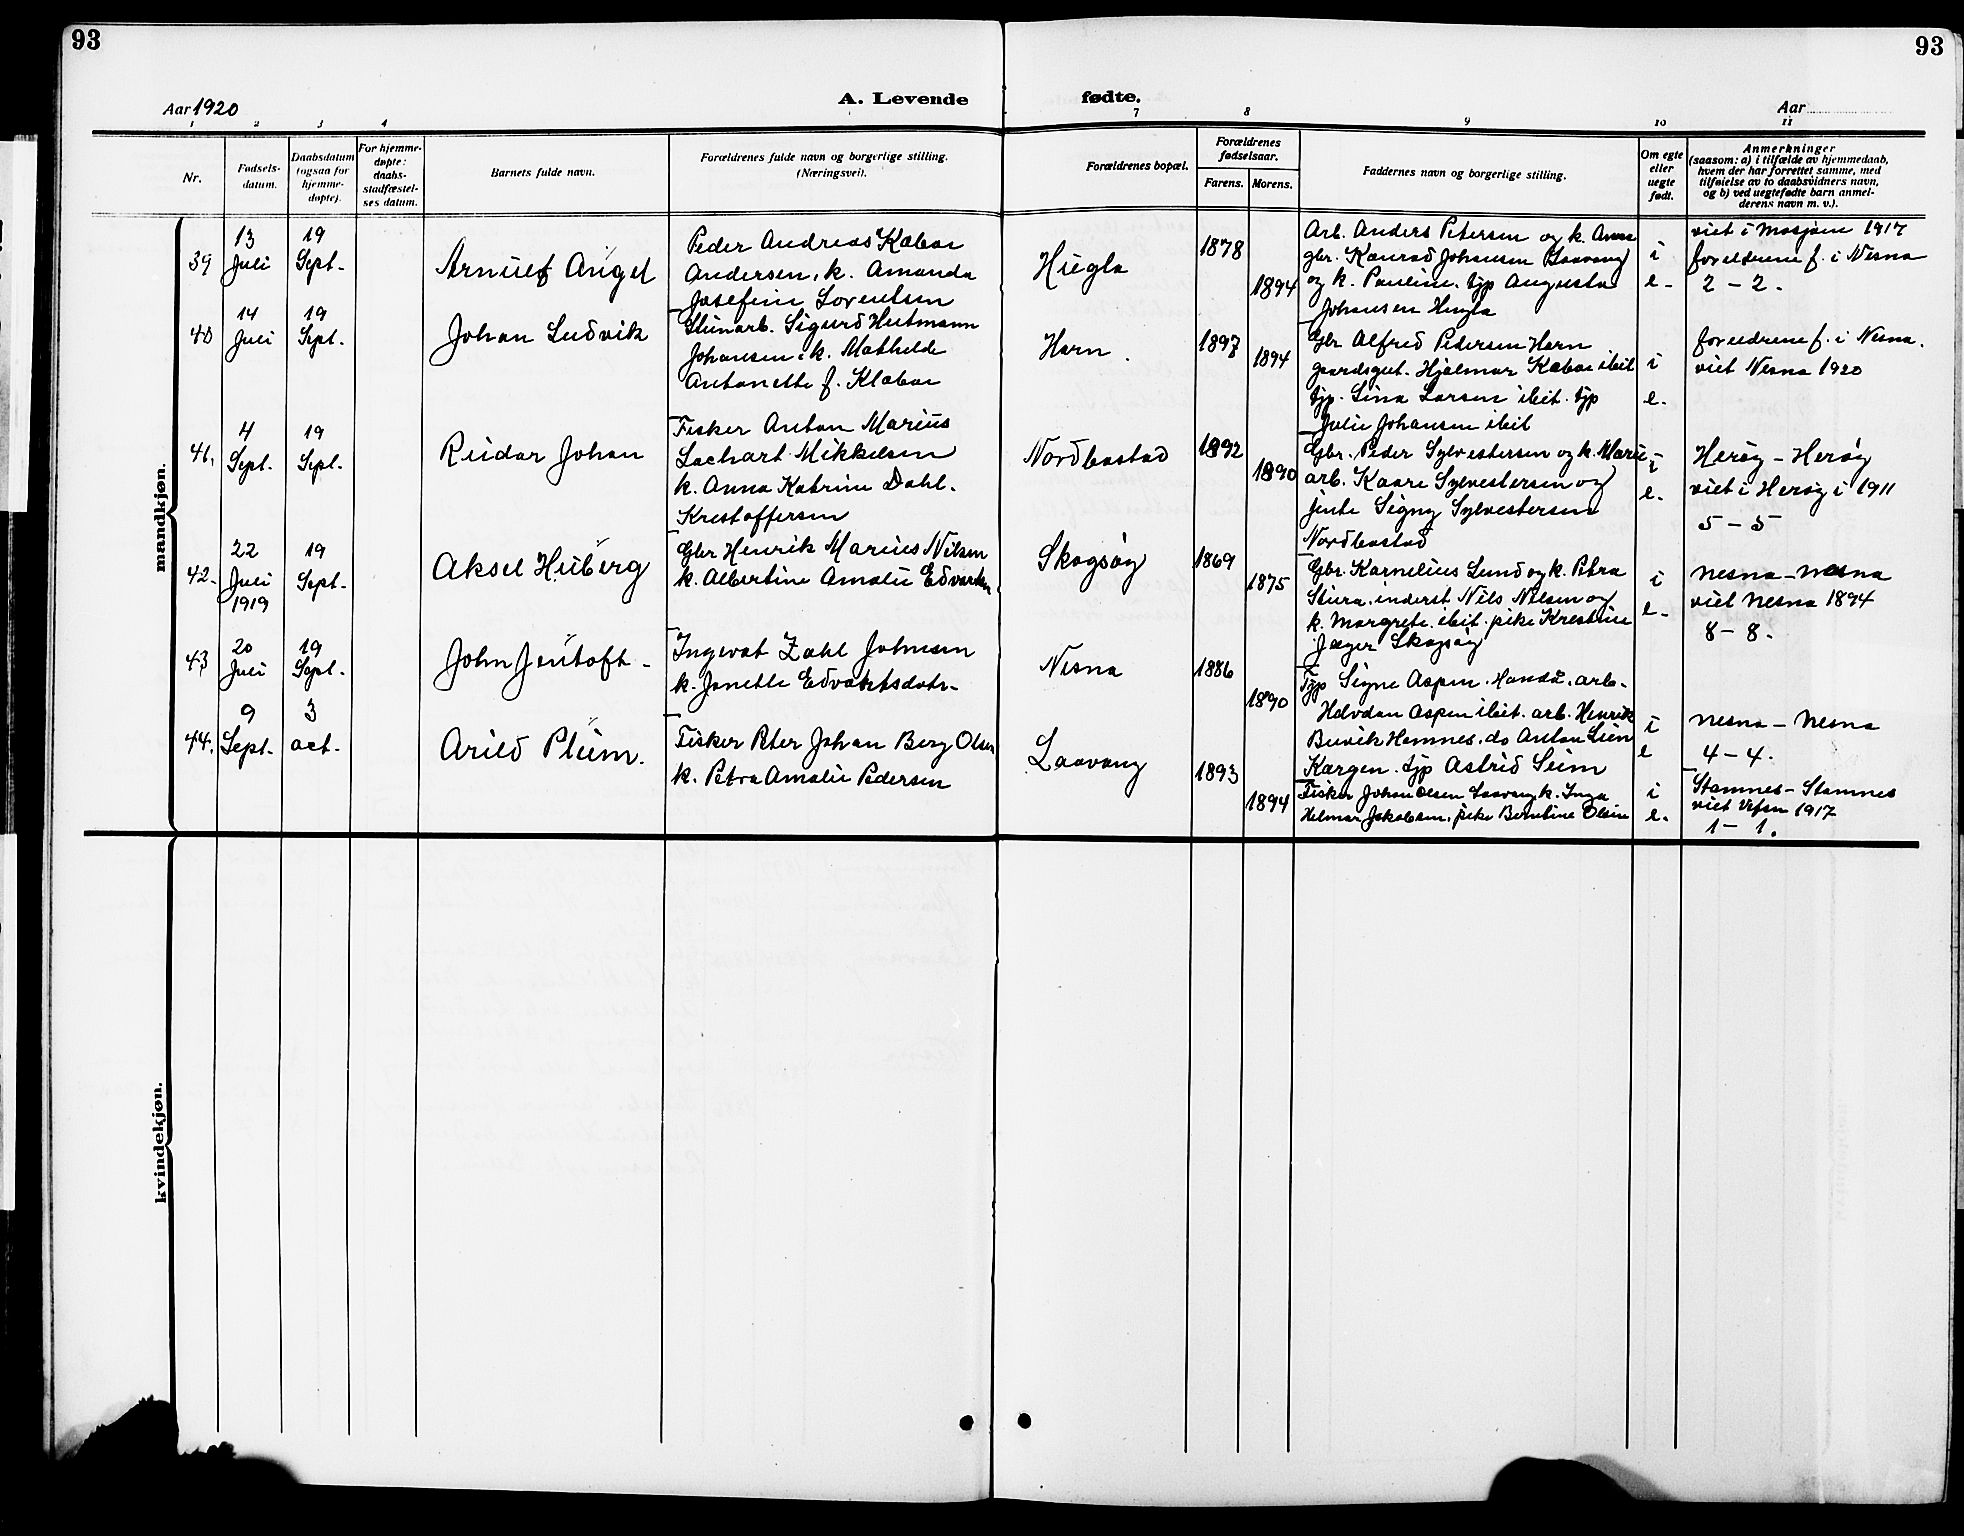 93
93
Aar 1920
A. Levende
fødte.
Aar
1 2 3 4 7 8 9 10 11
Nr.
Fødsels-
datum.
Daabsdatum
(ogsaa for
hjemme-
døpte).
For hjemme-
døpte:
daabs-
stadfæstel-
ses datum.
Barnets fulde navn.
Forældrenes fulde navn og borgerlige stilling.
(Næringsvei).
Forældrenes bopæl.
Forældrenes
fødselsaar.
Farens. Morens.
Faddernes navn og borgerlige stilling.
Om egte
eller
uegte
født.
Anmerkninger
(saasom: a) i tilfælde av hjemmedaab,
hvem der har forrettet samme, med
tilføielse av to daabsvidners navn,
og b) ved uegtefødte barn anmel-
derens navn m. v.).
mandkjøn.
39
13
Juli
19
Sept.
Arnulf Angel
Peder Andreas
Andersen, k. Amanda
Josefine Lorentsen
Hugla
1878
1894
Arb. Anders Petersen og k. Anna
gbr. Konrad Johansen Laavang
og k. Pauline. tjp Augusta
Johansen Hugla
i
e.
viet i Mosjøen 1917
foreldrene f. i Nesna
2 - 2.
40
14
Juli
19
Sept.
Johan Ludvik
Stenarb. Sigurd Hutmann
Johansen, k. Mathilde
Antonette f.
Horn.
1897
1894
Gbr Alfred Pedersen Horn
gaardsgut. Hjalmar ibit
tjp. Lina Larsen ibit. tjp
Julie Johansen ibit
i
e.
foreldrene f. i Nesna.
viet Nesna 1920
41.
4
Sept.
19
Sept.
Reidar Johan
Fisker Anton Marius
Lochart Mikkelsen
k. Anna Katrine Dahl.
Kristoffersen
Nordbostad
1892
1890
Gbr. Peder Sylvestersen og k. Marie
arb. Kaare Sylvestersen og
jente Signy Sylvestersen
Nordbostad
i
e.
Herøy - Herøy
viet i Herøy i 1911
5 - 5
42.
22
Juli
1919
19
Sept.
Aksel Huberg
Gbr Henrik Marius Nilsen
k. Albertine Amalie Edvardsen
Skogsøy
1869
1875
Gbr. Kornelius Lund og k. Petra
Stura. inderst Nils Nilsen og
k. Margrete. ibit. pike Kristine
Jæger Skogsøy
i
e.
Nesna - Nesna
viet Nesna 1894
8 - 8.
43
20
Juli
19
Sept.
John Jentoft
Ingevat Zahl Johnsen
k. Janette Edvartsdatr.
Nesna
1886
1890
Tjp Signe Aspen. Handn. arb.
Halvdan Aspen ibit. arb. Henrik
Buvik Hamnes. do Anton
. tjp Astrid
i
e
Nesna - Nesna
4 - 4.
44.
9
Sept.
3
oct.
Arild Plum.
Fisker Peter Johan Berg Olsen
k. Petra Amalie Pedersen
Laavang
1893
1894
Fisker Johan Olsen Laavang k. Inga
Helmar Jakobsen, pike Berntine Olsen
i
e.
Stamnes - Stamnes
viet Vefsn 1917
1 - 1.
kvindekjøn.